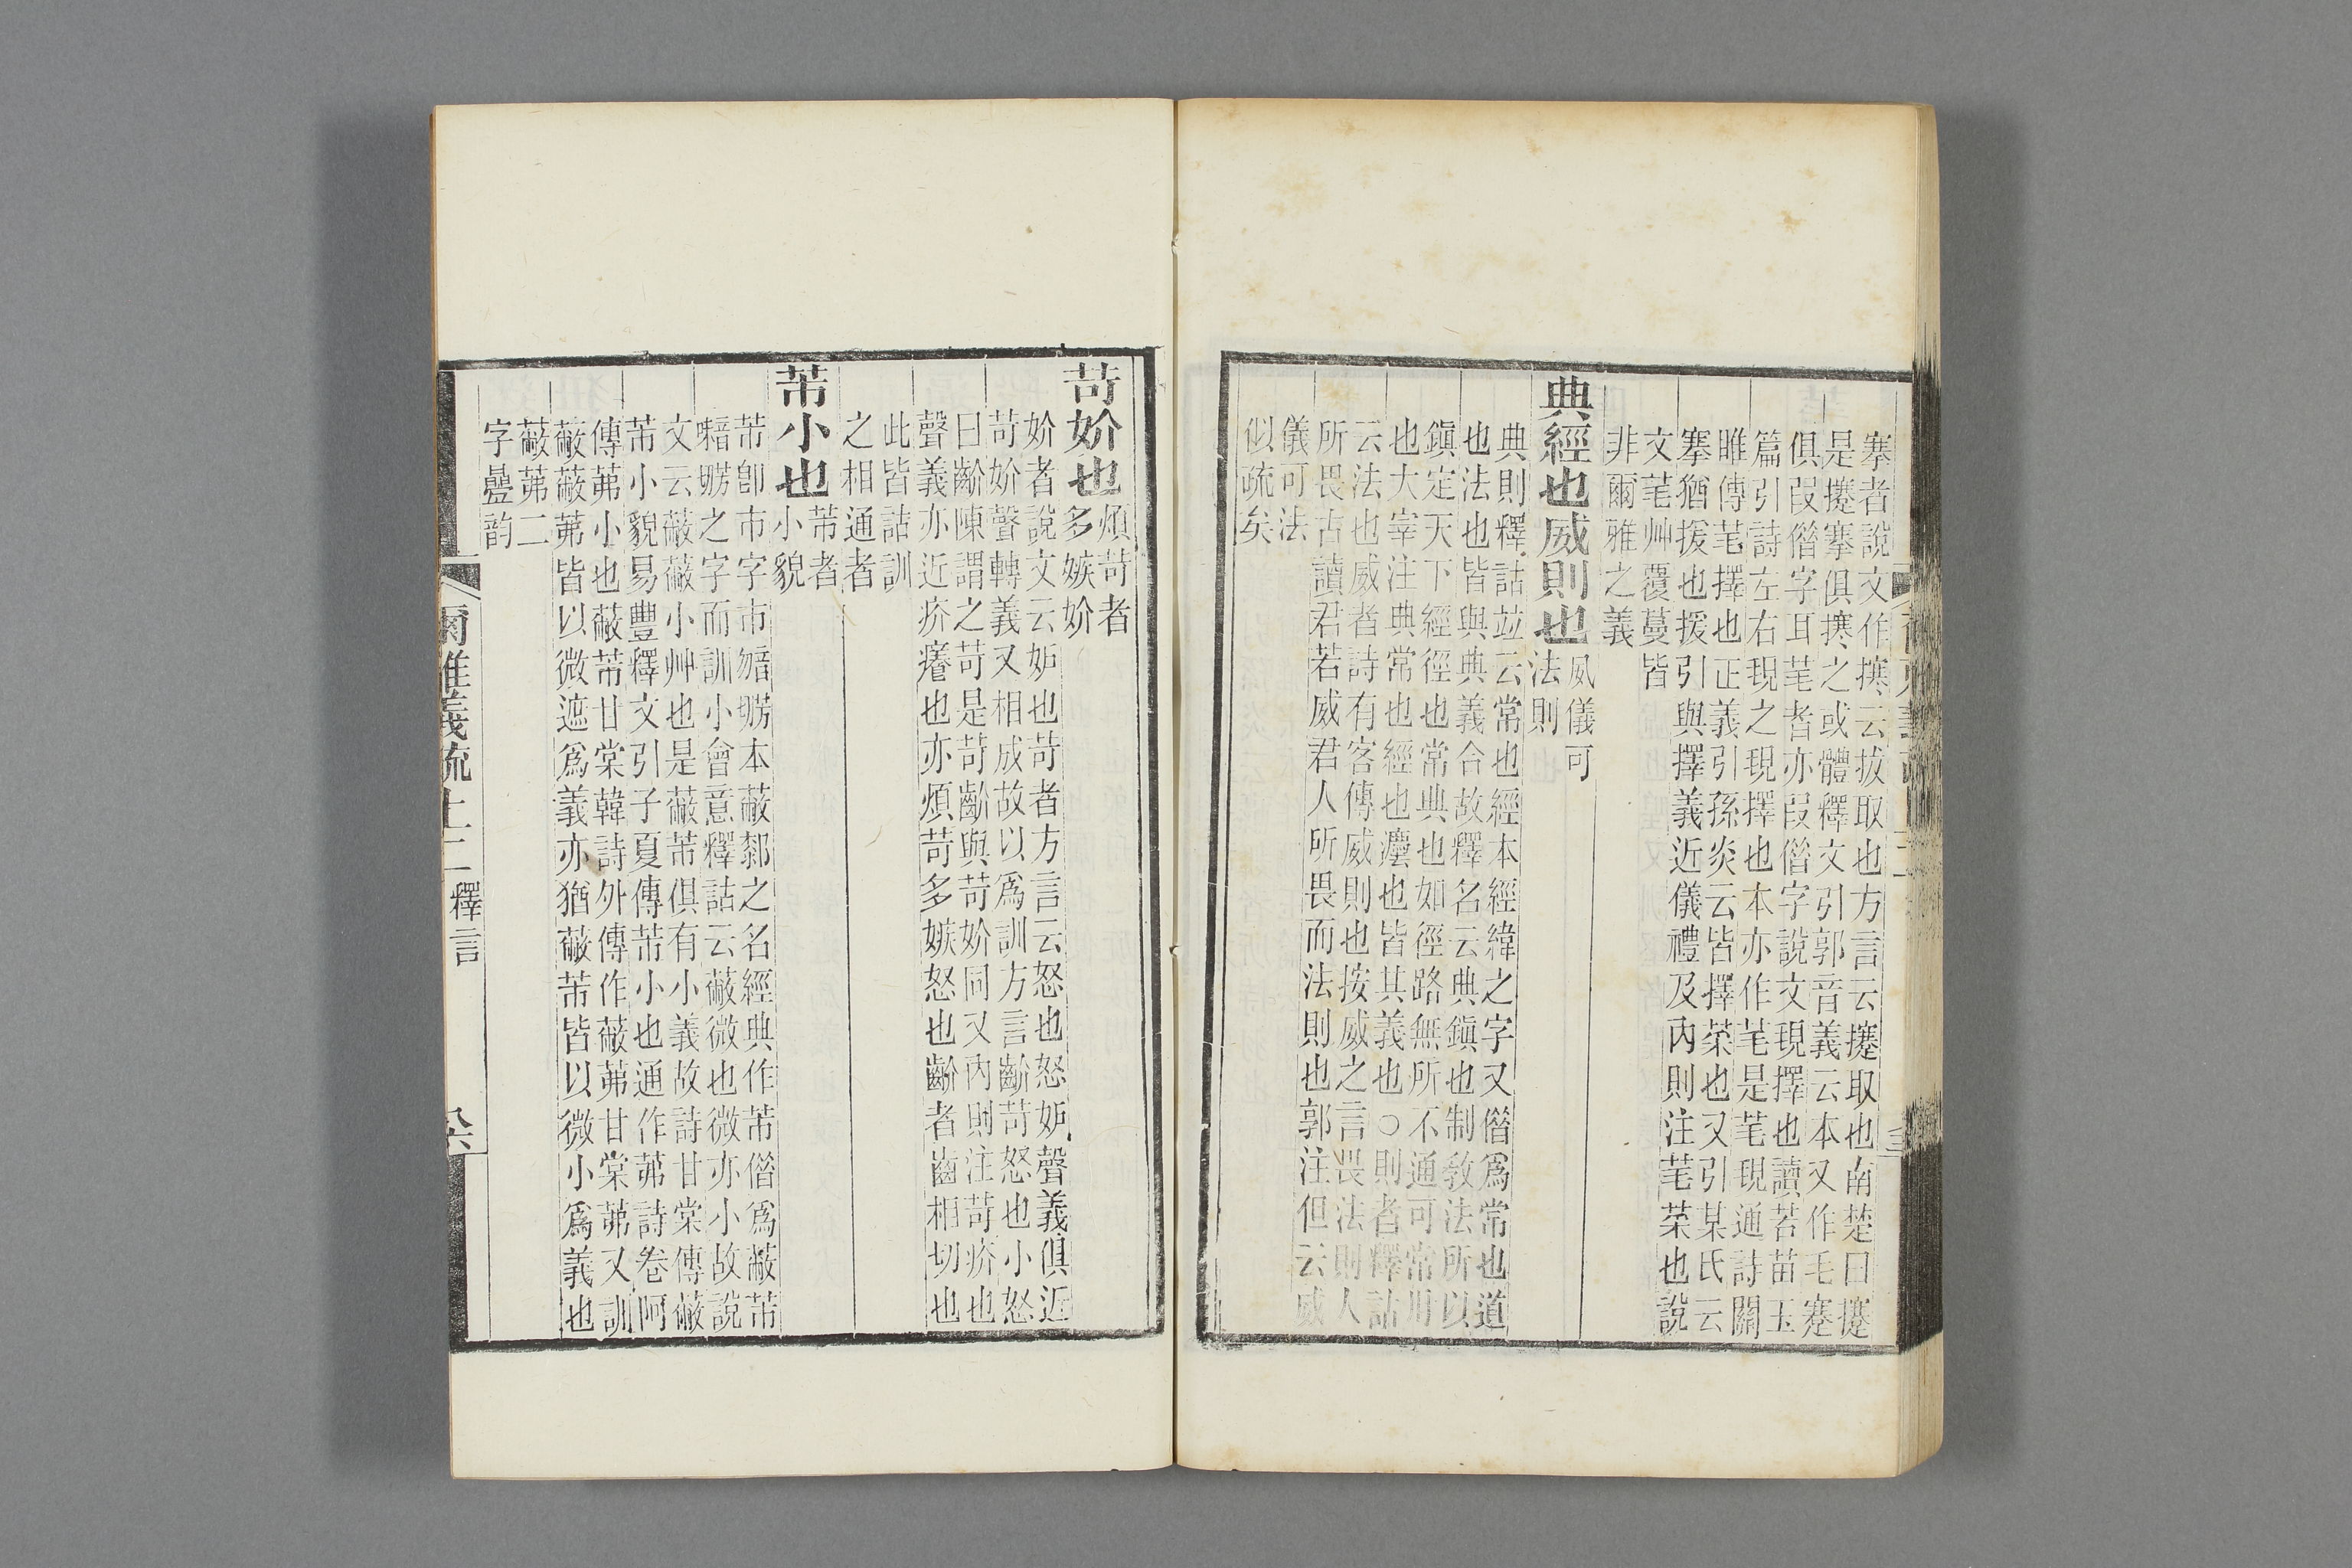 搴者說文作㩃云拔取也方言云攓取也南楚曰攓
是攓搴俱㩃之或體釋文引郭音義云本又作毛蹇
俱叚偕字耳芼者亦叚偕字說文現擇也讀若苗玉
篇引詩左右現之現擇也本亦作芼是芼現通詩關
睢傳芼擇也正義引孫炎云皆擇菜也又引某氏云
搴猶援也援引與擇義近儀禮及內則注芼菜也說
文芼艸覆蔓皆
非爾雅之義
典經也威則也
威儀可
法則
典則釋詁竝云常也經本經緯之字又偕爲常也道
也法也皆與典義合故釋名云典鎮也制教法所以
鎮定天下經徑也常典也如徑路無所不通可常用
也大宰注典常也經也灋也皆其義也○則者釋詁
云法也威者詩有客傳威則也按威之言畏法則人
所畏古讀君若威君人所畏而法則也郭注但云威
儀可法
似疏矣
苛妎也
煩苛者
多嫉妎
妎者說文云妒也苛者方言云怒也怒妒聲義俱近
苛妎聲轉義又相成故以爲訓方言齘苛怒也小怒
曰齘陳謂之苛是苛齘與苛妎同又內則注苛疥也
聲義亦近疥癢也亦煩苛多嫉怒也齘者齒相切也
此皆詁訓
之相通者
芾小也
芾者
小貌
芾卽市字市𦱤昲本蔽䣛之名經典作芾偕爲蔽芾
之字而訓小會意釋詁云蔽微也微亦小故說
文云蔽蔽小艸也是蔽芾俱有小義故詩甘棠傳蔽
芾小貌易豐釋文引子夏傳芾小也通作茀詩卷阿
傳茀小也蔽芾甘棠韓詩外傳作蔽茀甘棠茀又訓
蔽蔽茀皆以微遮爲義亦猶蔽芾皆以微小爲義也
蔽茀二
字疊韵
爾雅義疏上二 釋言